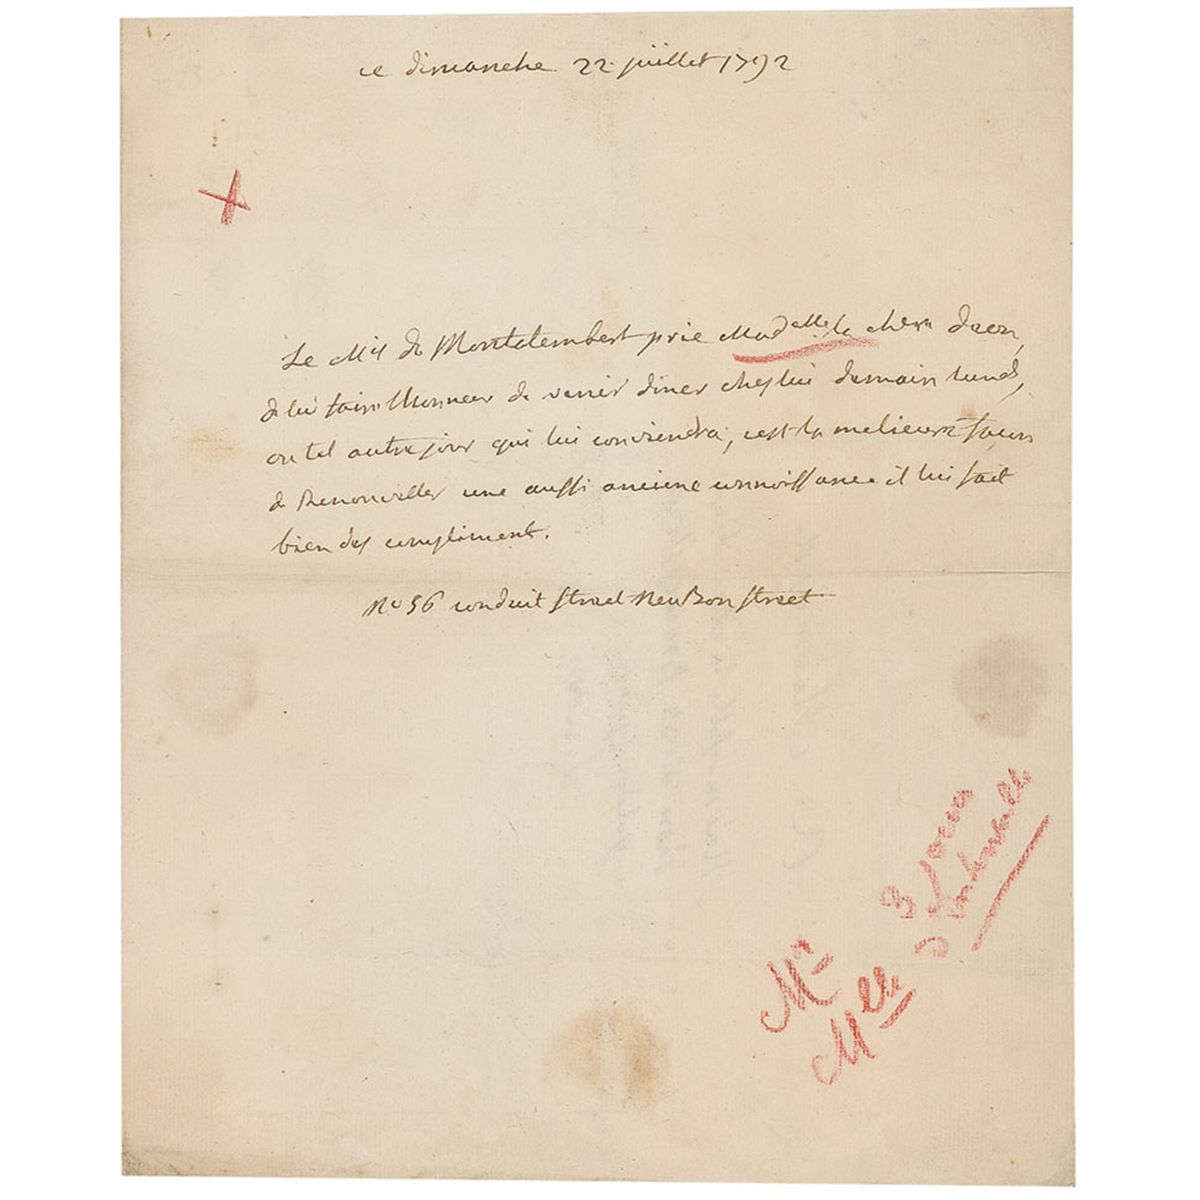 ce dimanche 22 juillet 1792
Le Mis de Montalembert prie Madelle la chere deon,
de lui faire lhonneur de venir diner chez lui demain lundi,
ou tel autre jour qui lui conviendra, cest la melieure facon
de Renouveller une aussi anciene connoissance il lui fait
bien des compliment.
No 36 conduit street New Bon street
Mr
Melle D